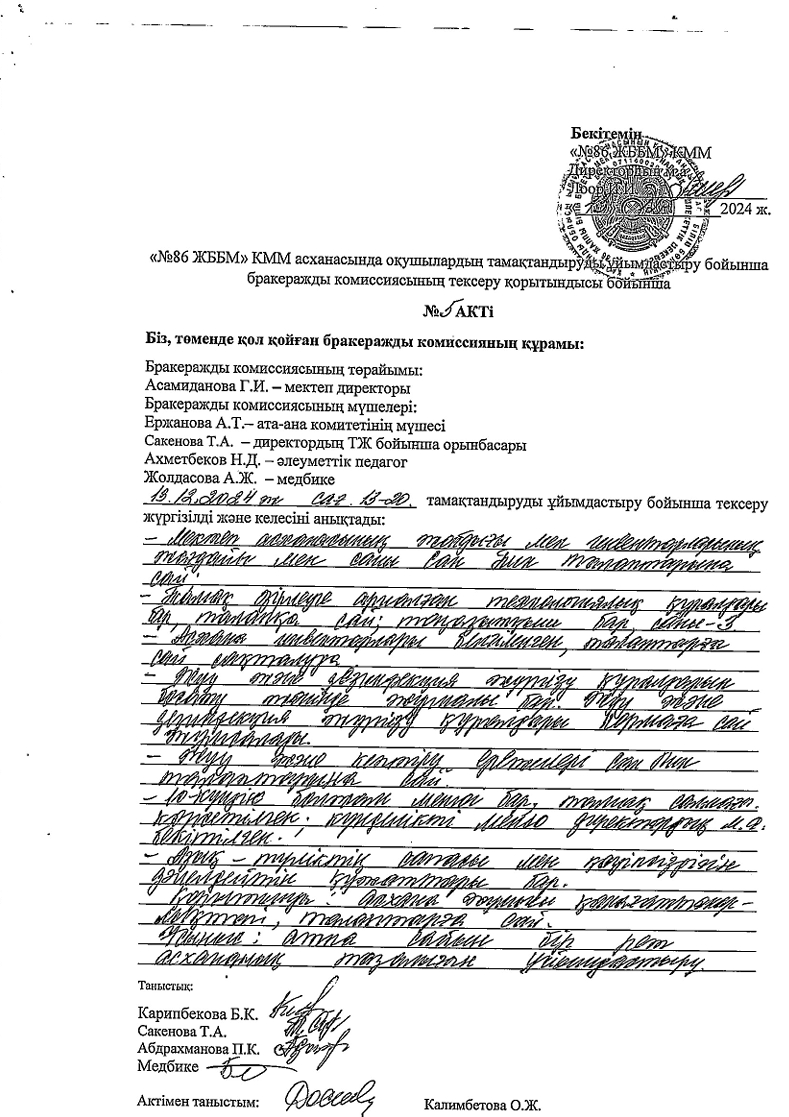 Бекітемін
«№86 ЖББМ» КММ
Директордың м.а
2024 ж.
«№86 ЖББМ» КММ асханасында оқушылардың тамақтандыруды ұйымдастыру бойынша
бракеражды комиссиясының тексеру қорытындысы бойынша
№5 АКТі
Біз, төменде қол қойған бракеражды комиссияның құрамы:
Бракеражды комиссиясының төрайымы:
Асамиданова Г.И. – мектеп директоры
Бракеражды комиссиясының мүшелері:
Ержанова А.Т.– ата-ана комитетінің мүшесі
Сакенова Т.А. – директордың ТЖ бойынша орынбасары
Ахметбеков Н.Д. – әлеуметтік педагог
Жолдасова А.Ж. – медбике
13.12.2024 ж сағ. 13-20. тамақтандыруды ұйымдастыру бойынша тексеру
жүргізілді және келесіні анықтады:
- Мектеп асханасының жабдығы мен инвентарларының
жағдайы мен саны сан Пин талаптарына
сай.
- Тамақ әзірлеуге арналған технологиялық құралдары
бар, талапқа сай; тоңазытқыш бар, саны-3.
- Асхана инвентарлары белгіленген, талаптарға
сай сақталуда
- Жуу және дезинфекция жүргізу құралдарын
қолдану жөнінде нұсқаулық бар. Жуу және
дезинфекция жүргізу құралдары нормаға сай
- Жуу және кептіру ережелері сан Пин
талаптарына сай.
- 10-күндік мәзірі бар, тамақ
көрсетілген. күнделікті меню директордың м.а.
бекітілген.
- Азық – түліктің сапасы мен қауіпсіздігін
дәлелдейтін құжаттары бар.
Қорытынды: асхана жұмысы қанағаттанар-
лықтай, талаптарға сай.
Ұсыныс: апта сайын бір рет
асхананың тазалығын ұйымдастыру.
Таныстық:
Карипбекова Б.К.
Сакенова Т.А.
Абдрахманова П.К.
Медбике
Актімен таныстым: Калимбетова О.Ж.